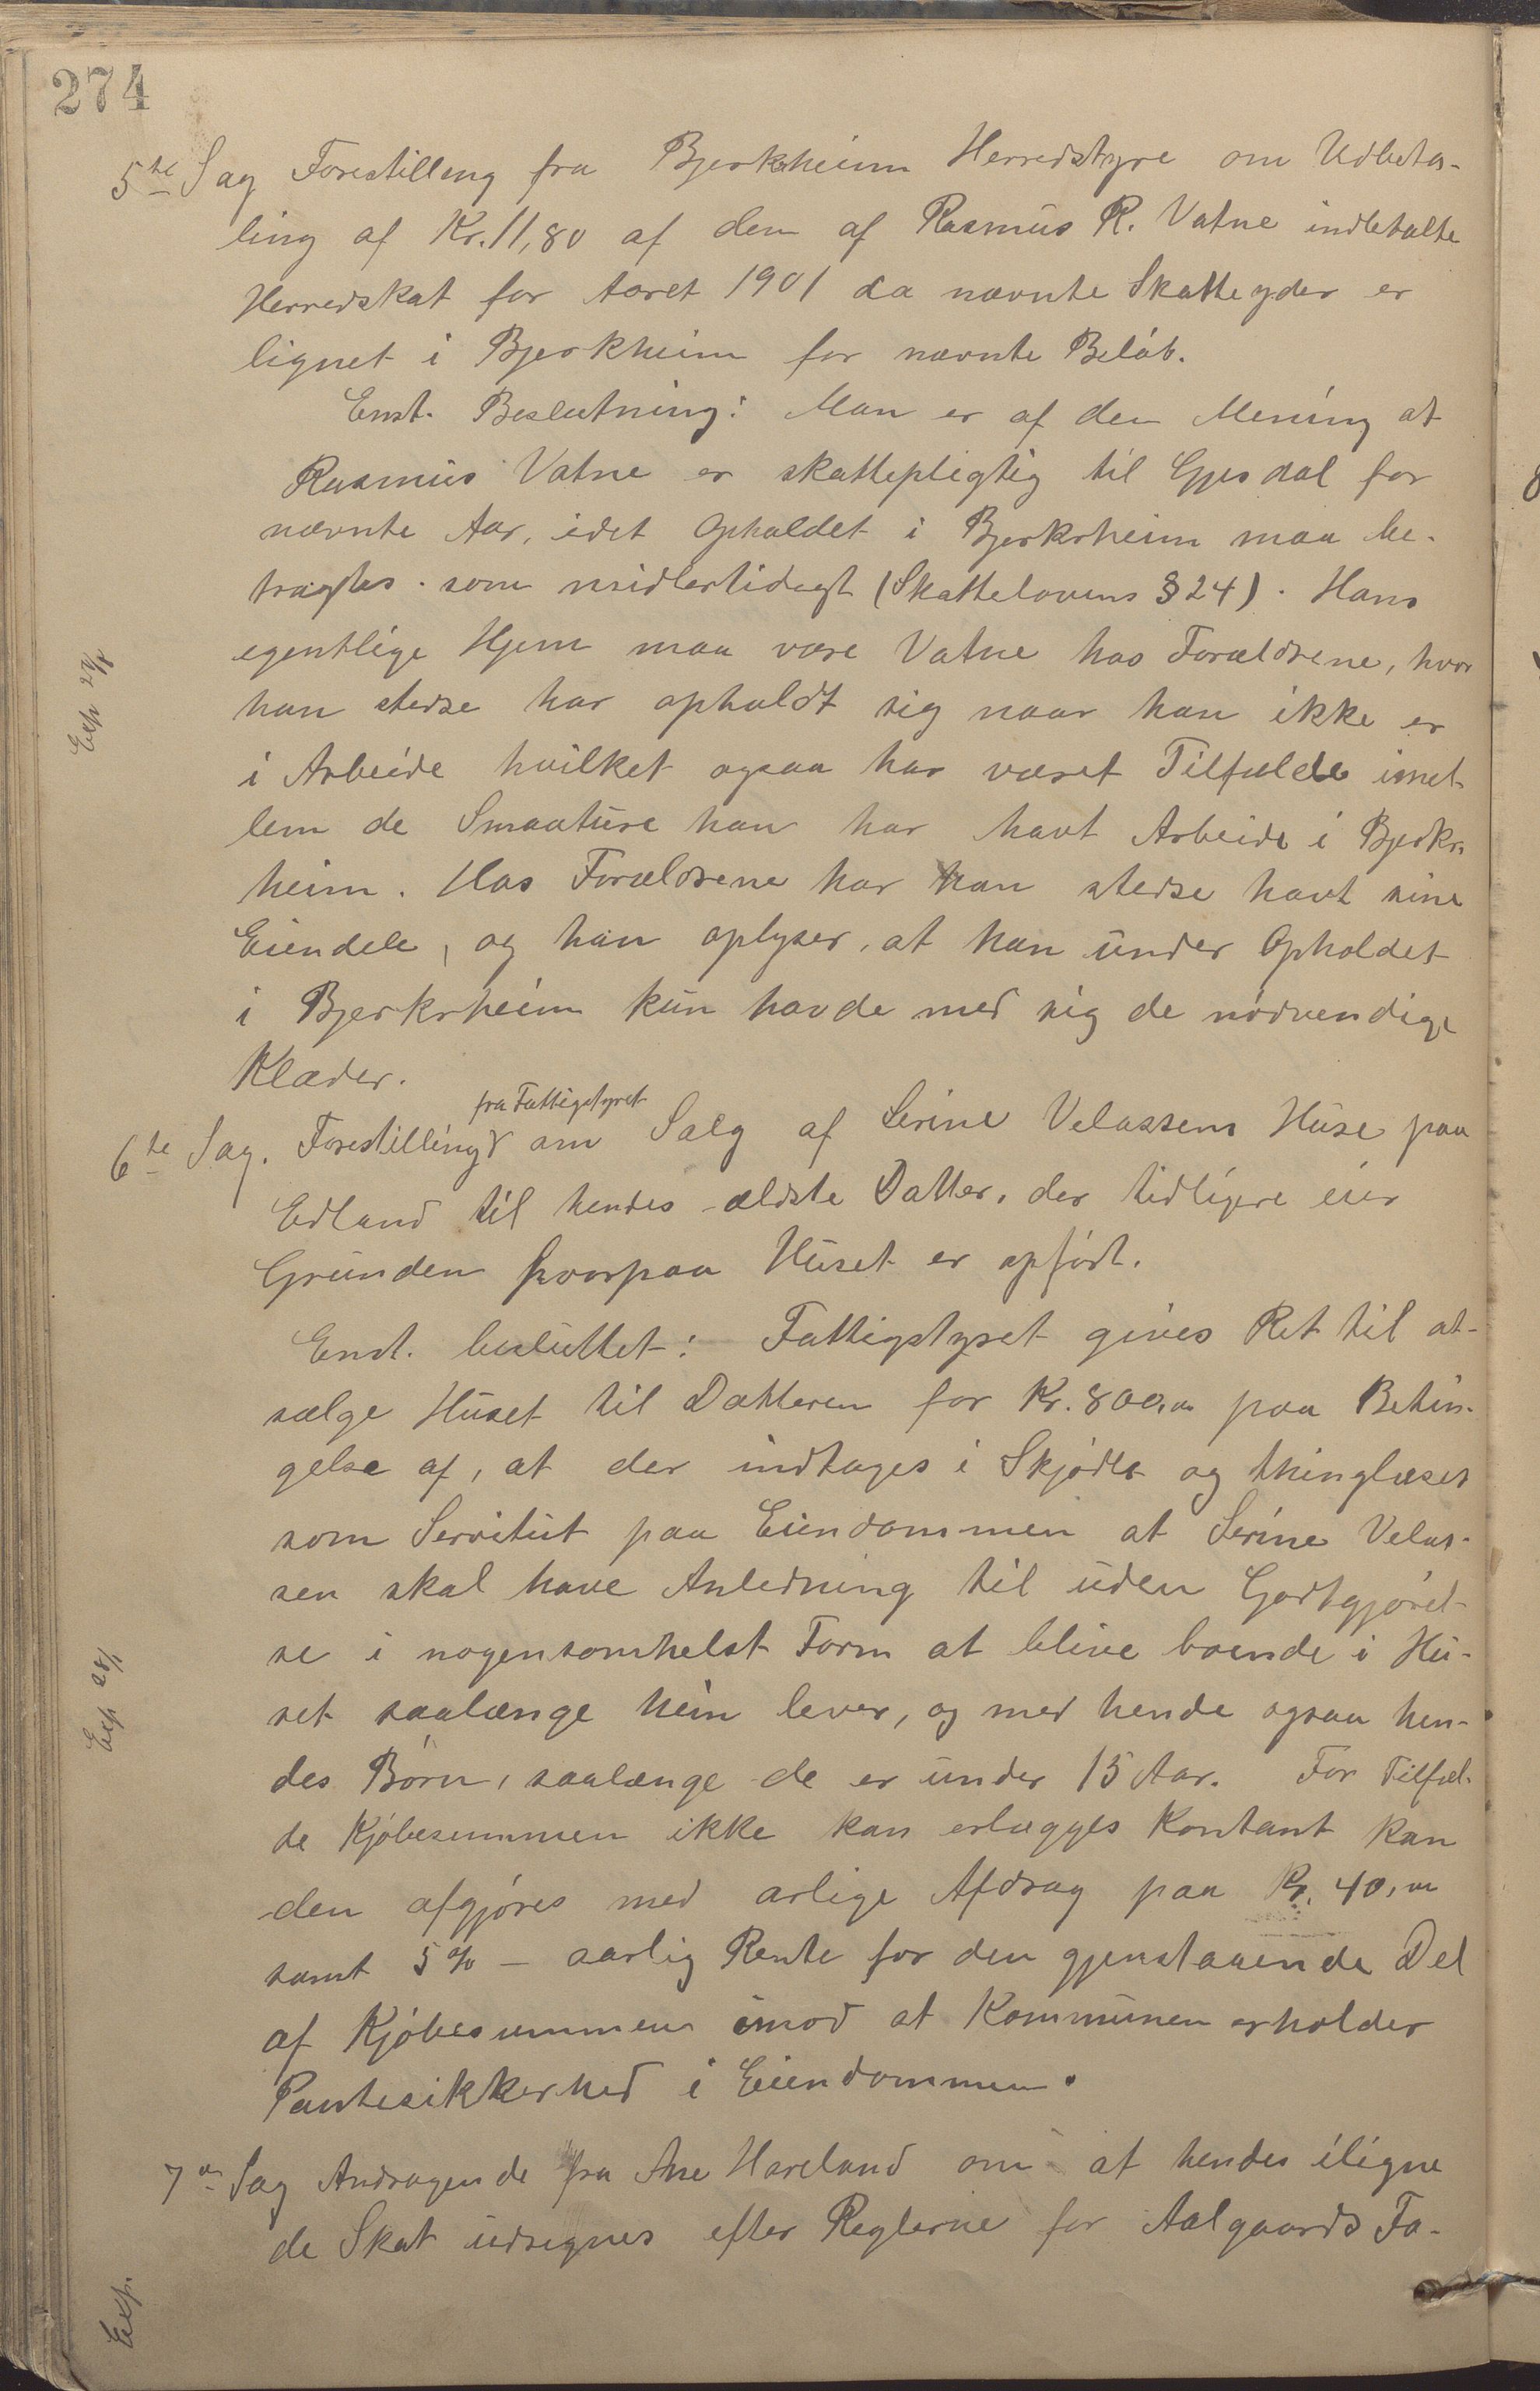 274
5te Sag Forestilling fra Bjerkreim Herredstyre om Udbeta-
ling af Kr. 11,80 af den af Rasmus R. Vatne indbetalte
Herredskat for Aaret 1901 da nævnte Skatteyder er
lignet i Bjerkheim for nævnte Beløb.
Enst. Beslutning: Man er af den Mening at
Rasmus Vatne er skattepligtig til Gjesdal for
nævnte Aar, idet Opholdet i Bjerkrheim maa be-
tragtes som midlertidigt (Skattelovens § 24). Hans
egentlige Hjem maa være Vatne hos Forældrene, hvor
han stedse har opholdt sig naar han ikke er
i Arbeide hvilket ogsaa har været Tilfælde imel-
lem de Smaature han har havt Arbeide i Bjerkr-
heim. Hos Forældrene har han stedse havt sine
Eiendele, og han oplyser, at han under Opholdet
i Bjerkrheim kun havde med sig de nødvendige
Klæder.
Exp 27/1
fra Fattigstyret
6te Sag. Forestilling om Salg af Serine Velassens Huse paa
Edland til hendes ældste Datter, der tidligere eier
Grunden hvorpaa Huset er opført.
Enst. besluttet: Fattigstyret gives Ret til at
sælge Huset til Datteren for Kr. 800,00 paa Betin-
gelse af, at der indtages i Skjødet og thinglæses
som Servitut paa Eiendommen at Serine Velas-
sen skal have Anledning til uden Godtgjørel-
se i nogensomhelst Form at blive boende i Hu-
set saalænge hun lever, og med hende ogsaa hen-
des Børn, saalænge de er under 15 Aar. For Tilfæl-
de Kjøbesummen ikke kan erlægges Kontant kan
den afgjøres med arlige Afdrag paa Kr. 40,00
samt 5 % – aarlig Rente for den gjenstaaende Del
af Kjøbesummen imod at Kommunen erholder
Pantesikkerhed i Eiendommen.
Exp 28/1
7de Sag Andragende fra Ane Haveland om at hendes iligne
de Skat udregnes efter Reglerne for Aalgaards Fa-
Exp.